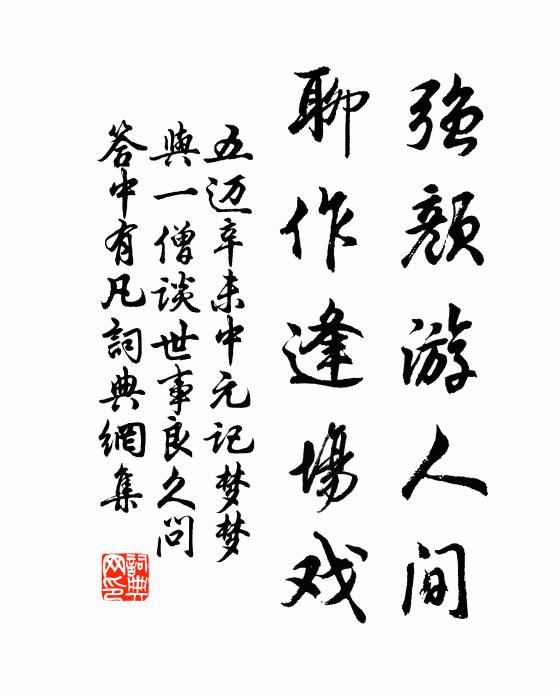 强颜游人间
聊作逢場戏
五迈辛未中元记梦梦
與一僧谈世事良久问
答中有凡詞典網集
詞典
网印